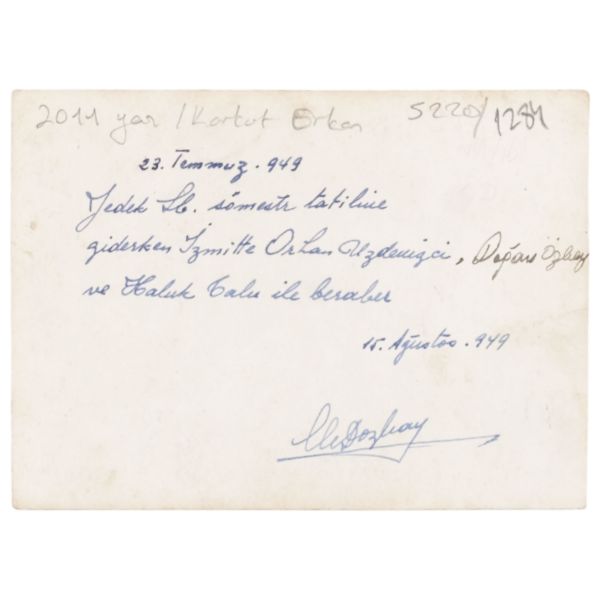 2011 yar / Korkut Erkan 5220/1284
23. Temmuz. 949
Yedek Sb. sömestr tatiline
giderken İzmitte Orhan Uzdenizci, Doğan Özbay
ve Haluk Talu ile beraber
15. Ağustos. 949